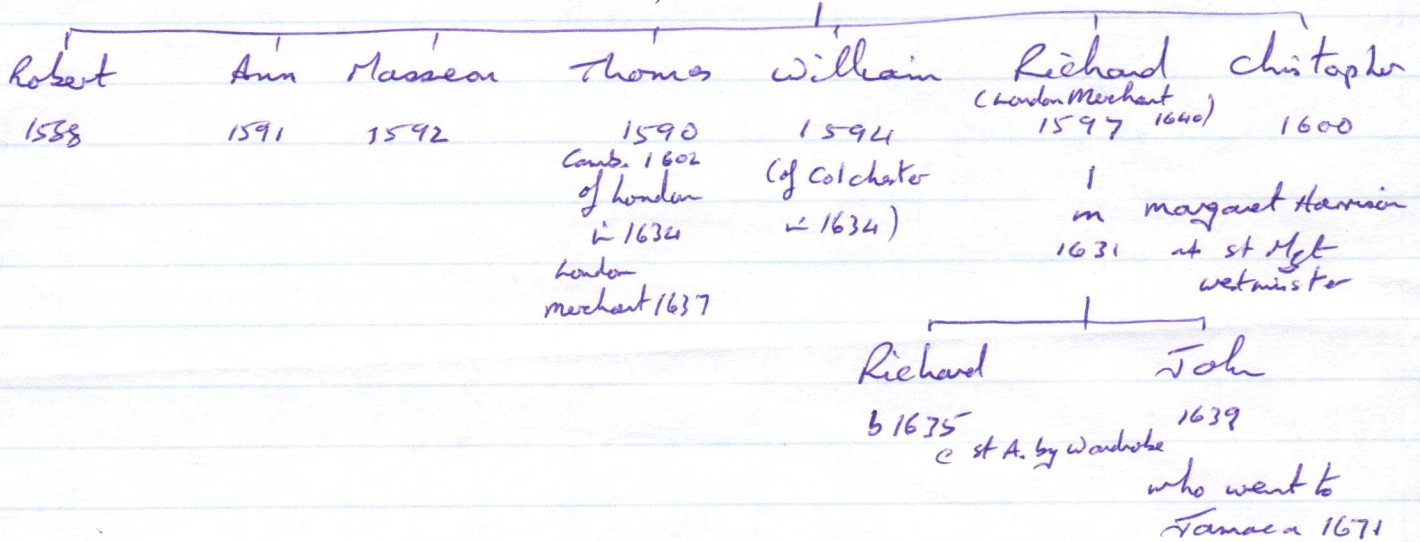 Robert Ann Masseon Thomas William Richard Christopher
(London Merchant 1640)
1588 1591 1592 1590 1594 1597 1600
Camb. 1602
of London
in 1634
London
merchant 1637
(of Colchester
in 1634)
m Margaret Harrison
1631 at St Mgt
westminster
Richard John
b 1635 1639
c st A. by Wardrobe
who went to
Jamaca 1671